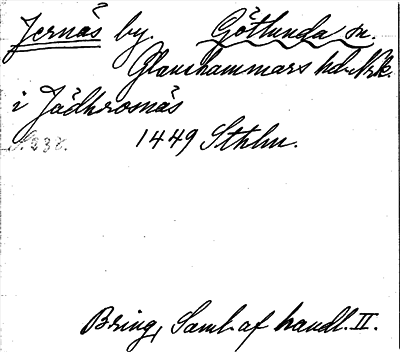 Jernäs by. Götlunda sn.
Glanshammars hd. Nrk.
i Jädhrosnäs
S. 232. 1449 Sthlm.
Bring, Saml. af handl. II.